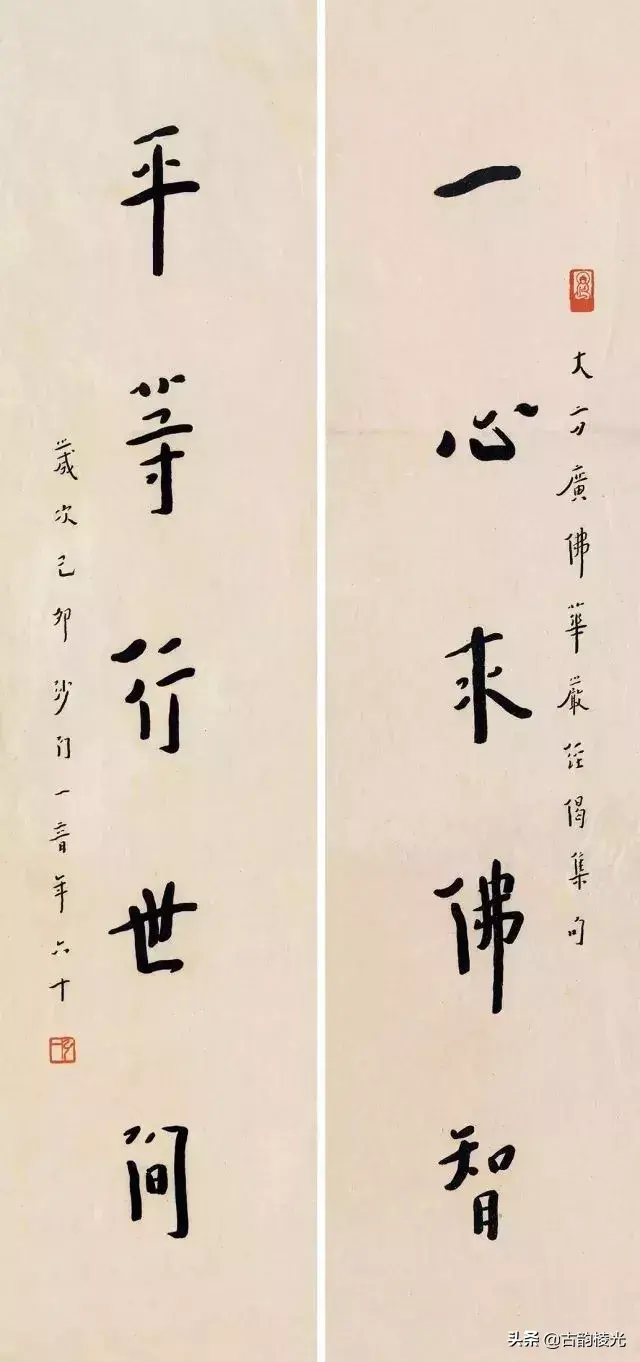 大方廣佛華嚴經偈集句
一心求佛智
平等行世間
歲次己卯沙門一音年六十
头条 @古韵棱光